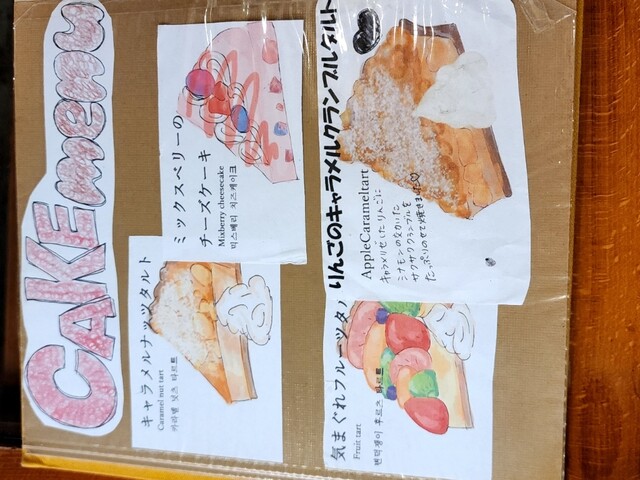 CAKE menu
キャラメルナッツタルト
Caramel nut tart
카라멜 넛츠 타르트
ミックスベリーの
チーズケーキ
Mixberry cheesecake
믹스베리 치즈케이크
気まぐれフルーツタ
Fruit tart
변덕쟁이 후르츠 타르트
りんごのキャラメルクランブルタルト
AppleCarameltart
キャラメリゼしたりんごに
シナモンの効いた
サクサククランブルを
たっぷりのせて焼きました♡